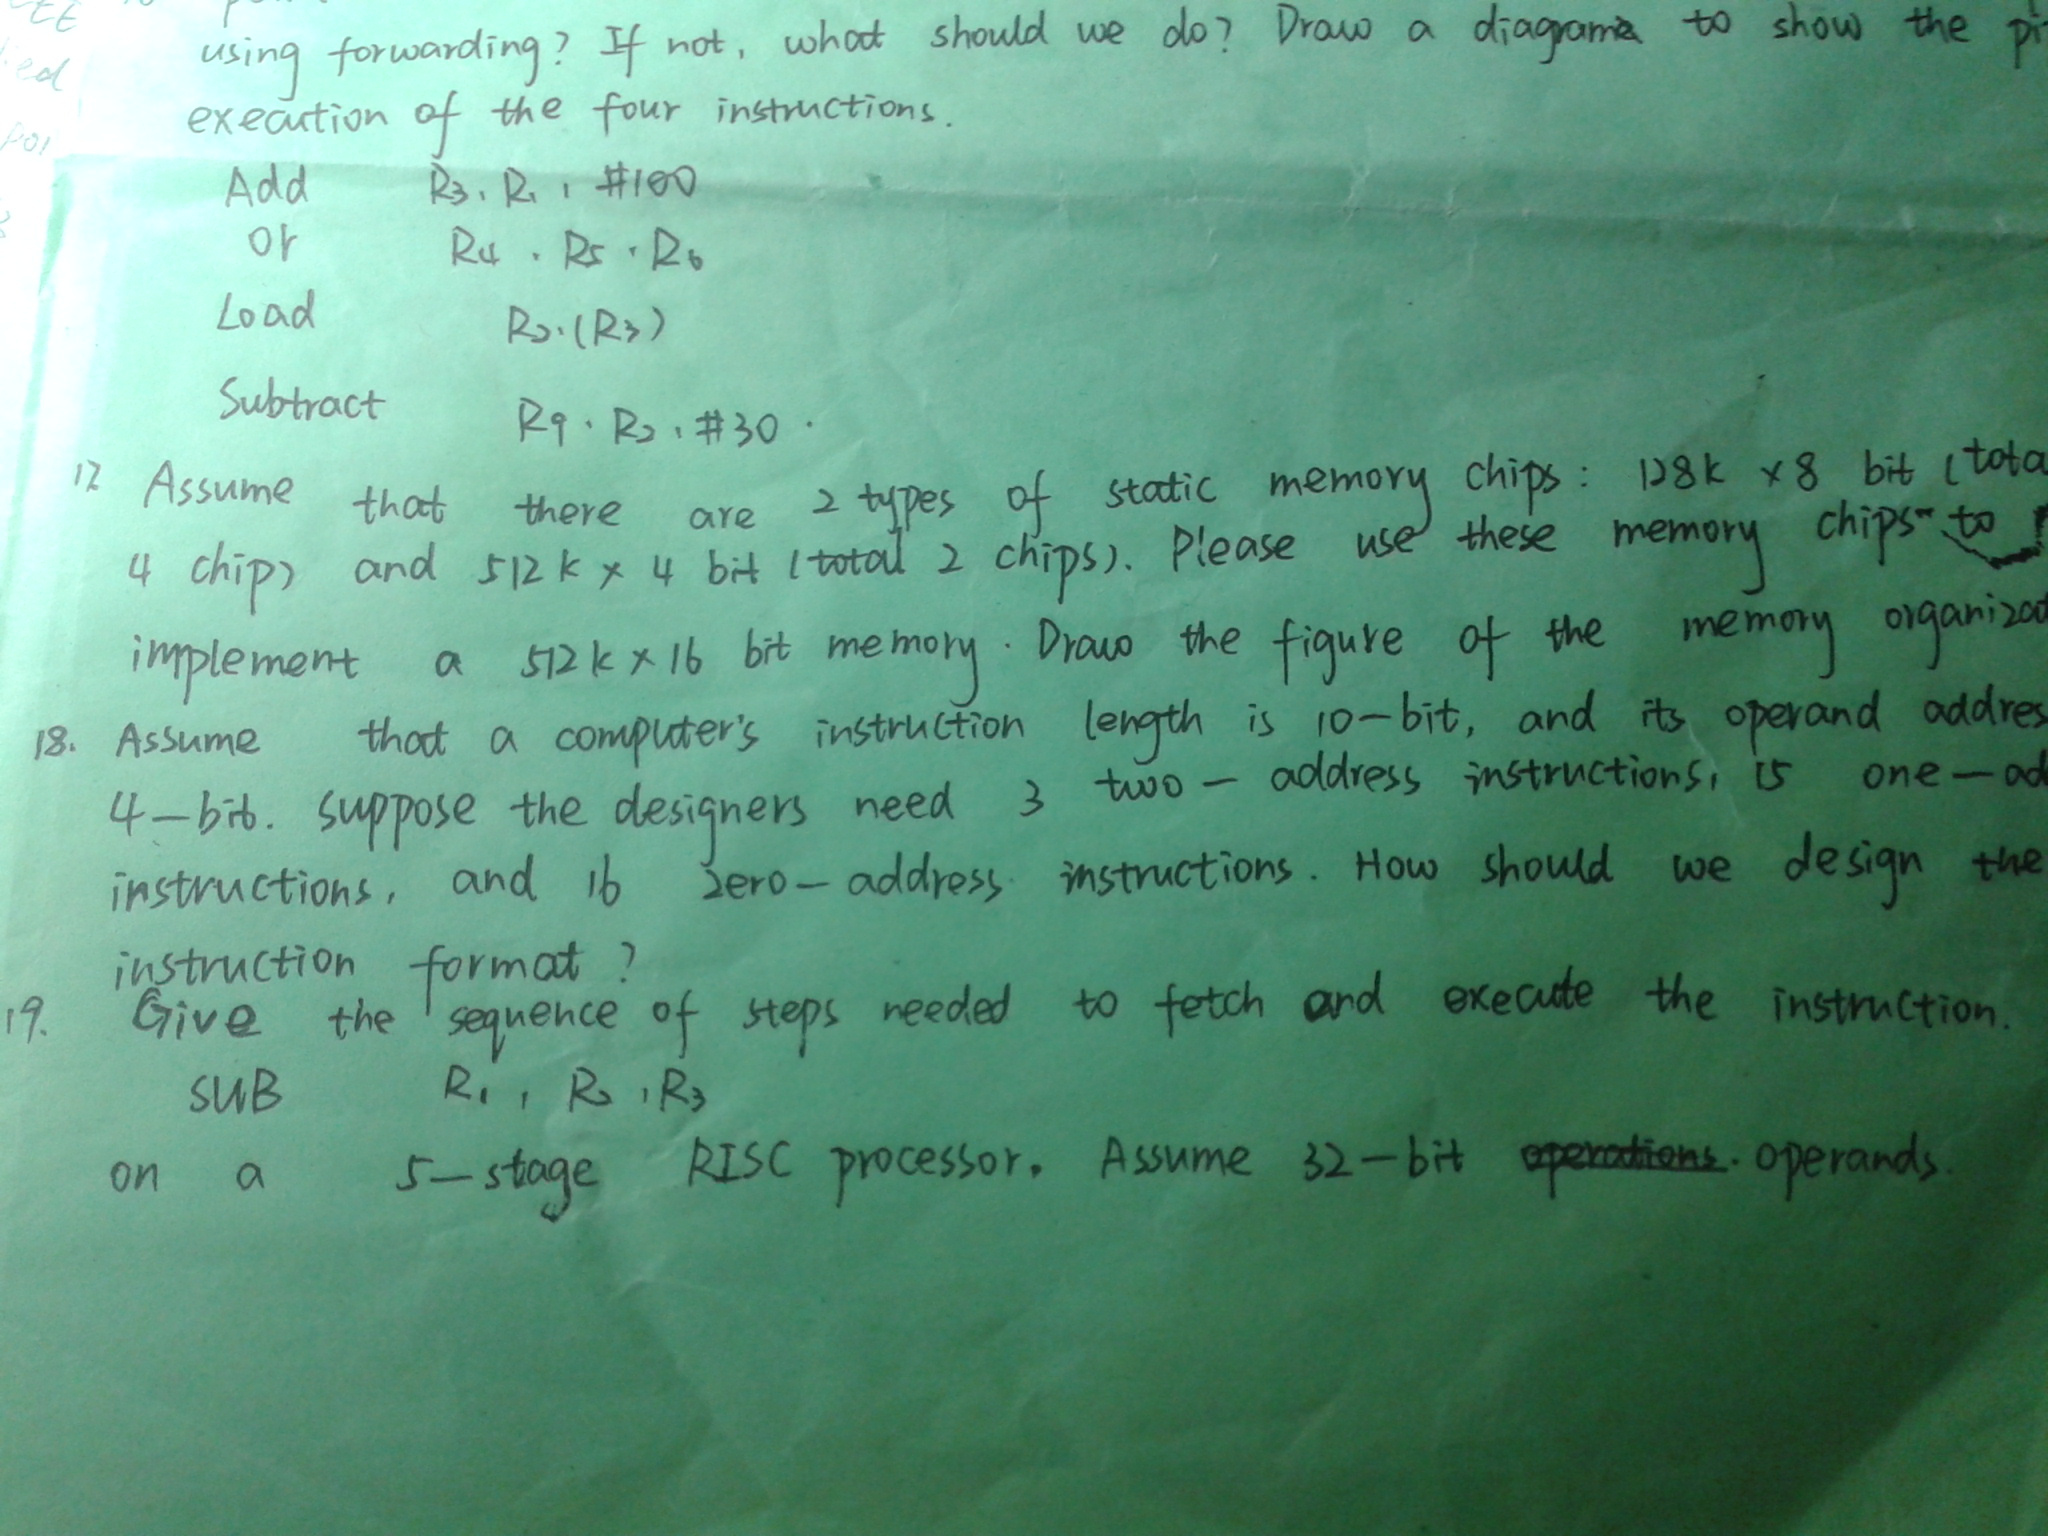 using forwarding? If not, what should we do? Draw a diagram to show the
execution of the four instructions.
Add R3, R1, #100
Or R4, R5, R6
Load R2, (R3)
Subtract R9, R2, #30.
17 Assume that there are 2 types of static memory chips: 128k x 8 bit (tota
4 chip) and 512k x 4 bit (total 2 chips). Please use these memory chips to
implement a 512k x 16 bit memory. Draw the figure of the memory organizat
18. Assume that a computer's instruction length is 10-bit, and its operand addres
4-bit. Suppose the designers need 3 two-address instructions, 15 one-ad
instructions, and 16 zero-address instructions. How should we design the
instruction format?
19. Give the sequence of steps needed to fetch and execute the instruction.
SUB R1, R2, R3
on a 5-stage RISC processor. Assume 32-bit operations. operands.